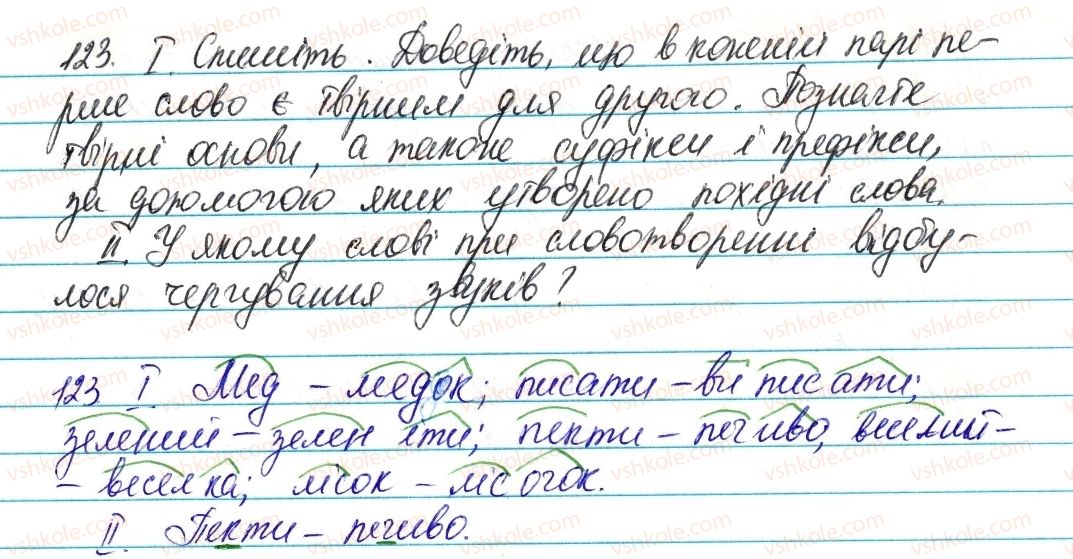 123. I. Спишіть. Доведіть, що в кожній парі пе-
рше слово є твірним для другого. Позначте
твірні основи, а також суфікси і префікси,
за допомогою яких утворено похідні слова.
II. У якому слові при словотворенні відбу-
лося чергування звуків?
123 I Мед - медок; писати - виписати;
зелений - зеленіти; пекти - печиво, веселий -
- веселка; лісок - лісочок.
II Пекти - печиво.